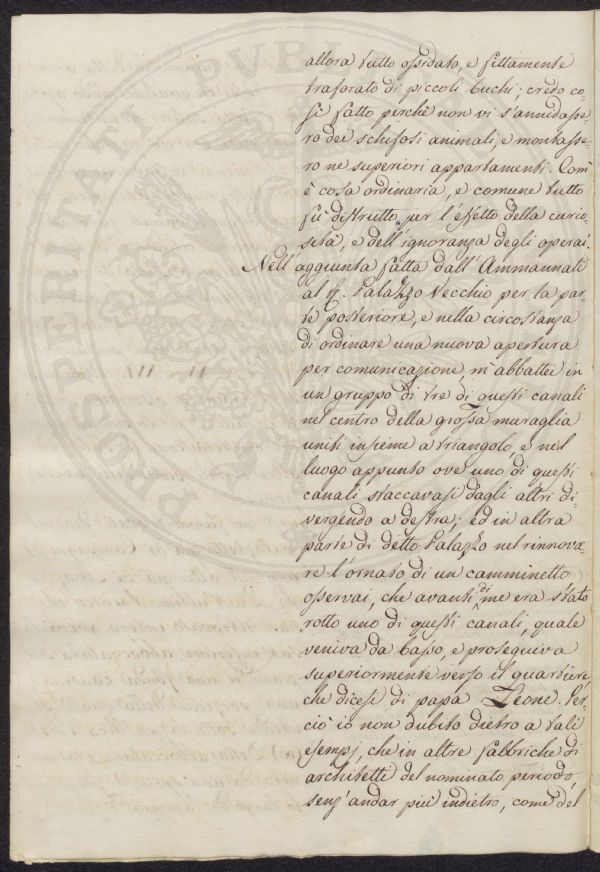 allora tutto ossidato, e fittamente
traforato di piccoli buchi; credo co=
sì fatto perchè non vi s'annidasse=
ro dei schifosi animali, e montasse=
ro ne superiori appartamenti. Com'
è cosa ordinaria, e comune tutto
fù distrutto per l'effetto della curio=
sità, e dell'ignoranza degli operai.
Nell'aggiunta fatta dall'Ammannati
al Palazzo Vecchio per la par=
te posteriore, e nella circostanza
di ordinare una nuova apertura
per comunicazione, m'abbattei in
un gruppo di tre di questi canali
nel centro della grossa muraglia
uniti insieme a triangolo, e nel
luogo appunto ove uno di questi
canali staccavasi dagli altri di=
vergendo a destra; ed in altra
parte di detto Palazzo nel rinnova=
re l'ornato di un camminetto
osservai, che avanti di me era stato
rotto uno di questi canali, quale
veniva da basso, e proseguiva
superiormente verso il quartiere,
che dicesi di papa Leone. Per=
ciò io non dubito dietro a tali
esempj, che in altre fabbriche di
architetti del nominato periodo,
senz'andar più indietro, come del
PROSPERITATI PVBLI